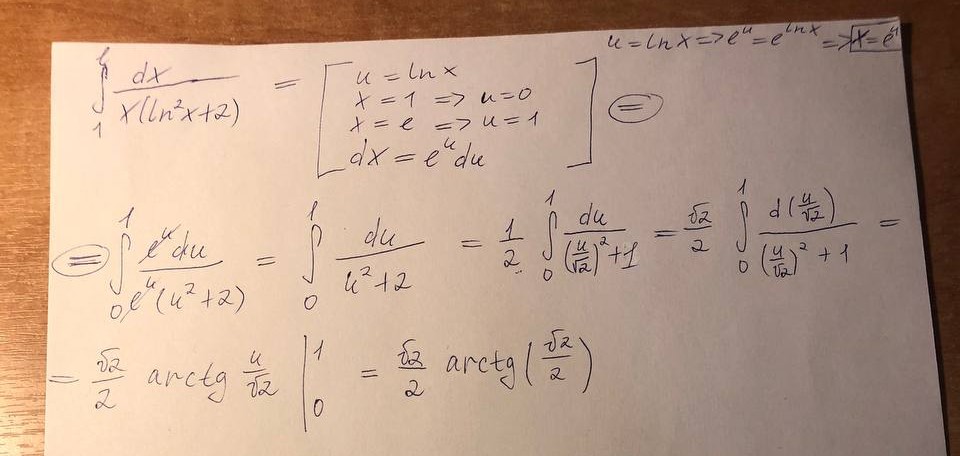 u = ln x => e^u = e^{ln x} => x = e^u
∫_1^e dx / (x(ln²x+2)) = [ u = ln x
x = 1 => u = 0
x = e => u = 1
dx = e^u du ] =
= ∫_0^1 e^u du / (e^u (u²+2)) = ∫_0^1 du / (u²+2) = 1/2 ∫_0^1 du / ((u/√2)² + 1) = √2/2 ∫_0^1 d(u/√2) / ((u/√2)² + 1) =
= √2/2 arctg u/√2 |_0^1 = √2/2 arctg(√2/2)